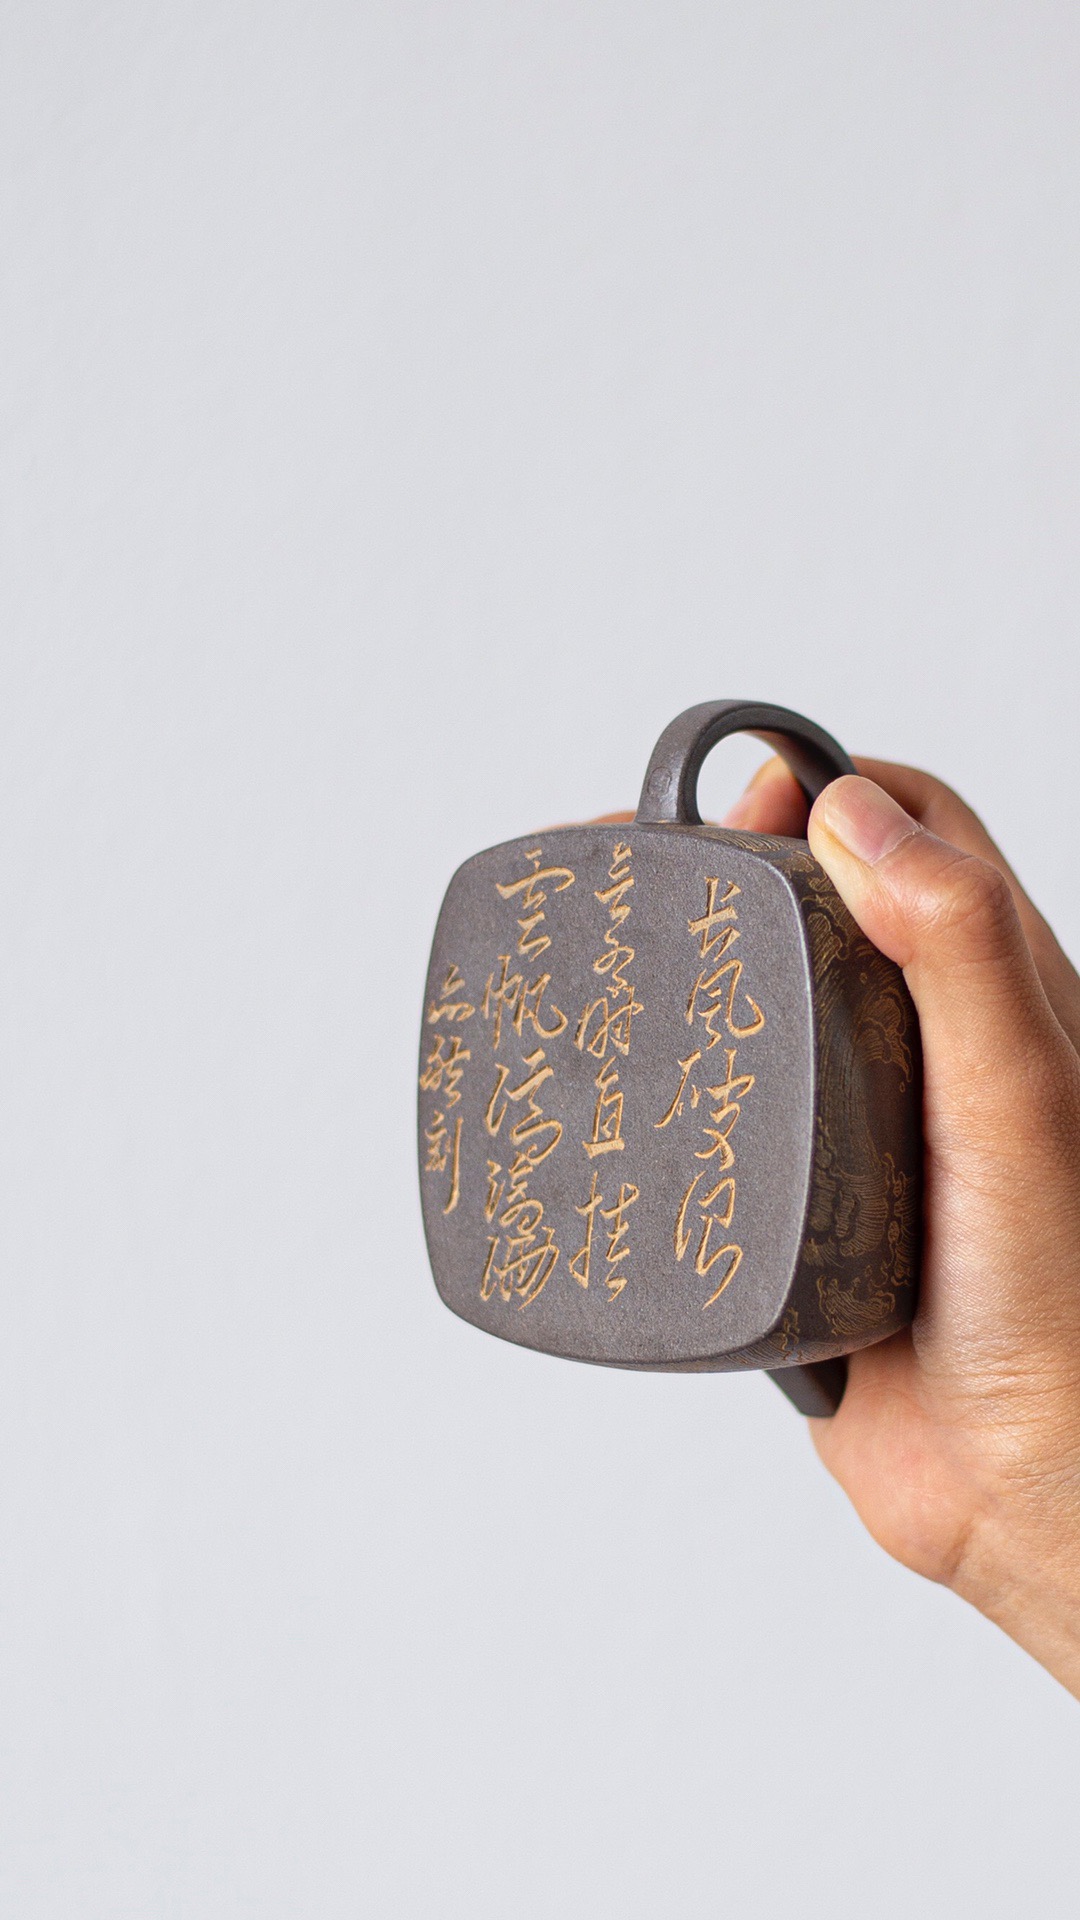 长风破浪
会有时直挂
雲帆济滄海
亦刻